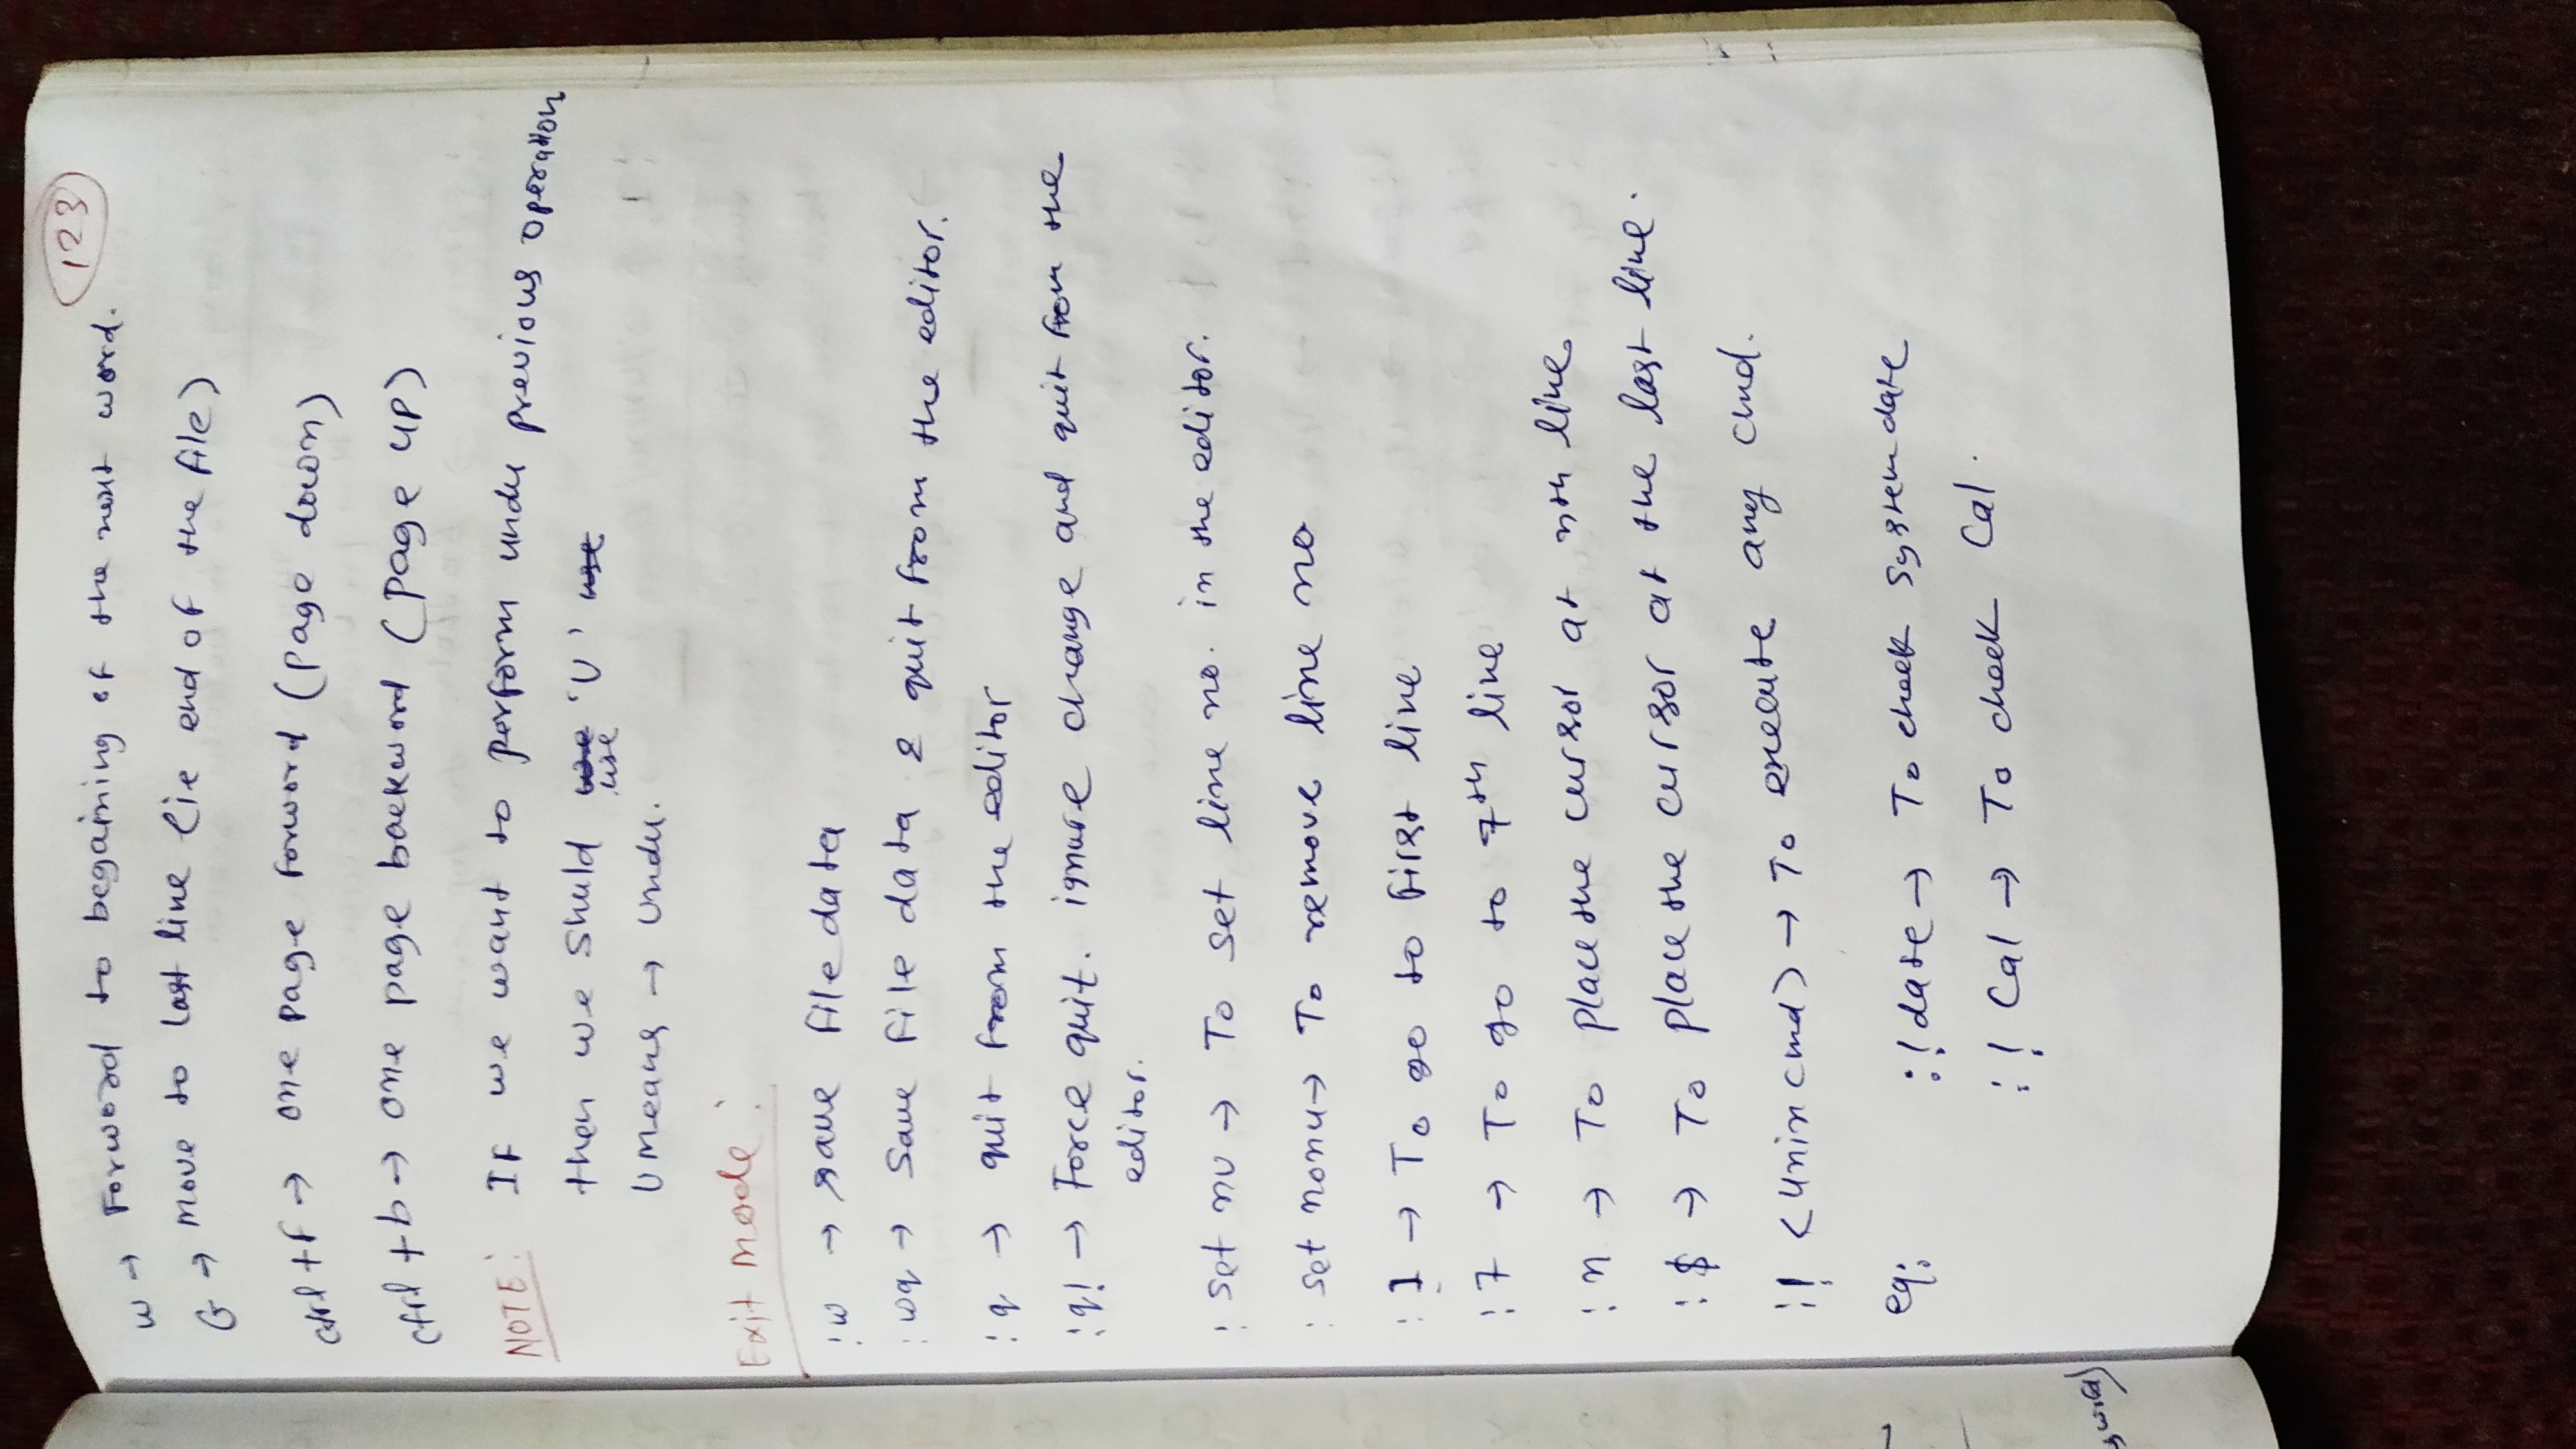 123
w → Forword to begaining of the next word.
G → Move to last line (ie end of the file)
ctrl + f → one page forword (page down)
ctrl + b → one page backword (page up)
NOTE: If we want to perform undu previous operation
then we Shuld we 'U' use
use
U Means → Undu.
Exit Mode:
:w → save file data
:wq → Save file data & quit from the editor.
:q → quit from the editor
:q! → Force quit. ignore change and quit from the
editor.
: set nu → To set line no. in the editor.
: set nonu → To remove line no
: 1 → To go to first line
: 7 → To go to 7th line
: n → To place the cursor at nth line
: $ → To place the cursor at the last line.
:! <unix cmd> → To execute any cmd.
eg: :! date → To check system date
:! Cal → To check Cal.